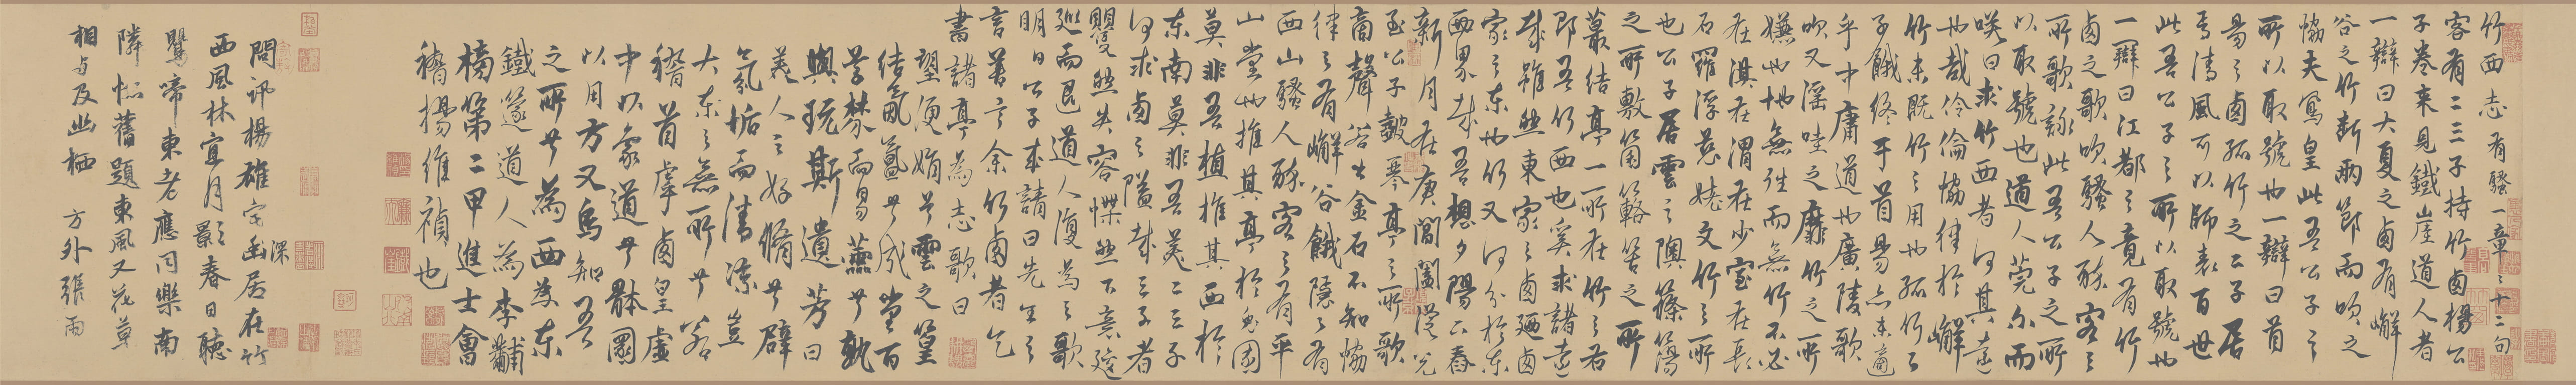 竹西志有騷一章章十二句
客有二三子持竹西楊公
子卷來見鐵崖道人者
一辯曰大夏之西有嶰
谷之竹斷兩節而吹之
協夫鳳皇此吾公子之
所以取號也一辯曰首
昜之西孤竹之二子居
焉清風可以師表百世
此吾公子之所以取號也
一辯曰江都之竟有竹
西之歌吹騷人醉客之
所歌詠此吾公子之所
以取號也道人莞尒而
咲曰求竹西者何其遠
也哉伶倫協律於嶰
竹未既竹之用也孤竹之
子餓終乎首昜亦未適
乎中庸道也廣陵歌
吹又滛哇之靡竹之所
嫌也地無往而無竹不必
在淇在渭在少室在長
石羅浮慈姥文竹之所
也公子居雲之隩篠簜
之所敷箘簵箁之所
叢結亭一所在竹之右
即吾竹西也奚求諸遠
哉雖然東家之西廼西
家之東也竹又何分於東
西界哉吾想夕陽下舂
新月在庚閶闔從兌
至公子鼓琴亭之所歌
商聲若出金石不知協
律之有嶰谷餓隱之有
西山騷人醉客之有平
山堂也推其亭於兔園
莫非吾植推其西於
東南莫非吾美二三子
何求西之隘哉三子者
矍然失容慄然下意逡
巡而退道人復為之歌
明日公子來請曰先生之
言善言余竹西者乞
書諸亭為志歌曰
望便娟兮雲之篁
結氤氳兮成堂百
草棼而易蕪兮孰
與玩斯遺芳曰
美人之好脩兮辟
氛垢而清涼豈
大東之無所兮若
稽首乎西皇虛
中以象道兮體圓
以用方又烏知吾
之所兮為西為東
鐵篴道人為李黼
榜第二甲進士會
稽楊維禎也
問訊楊雄宅幽深居在竹
西風林宜月影春日聽
鸎啼東老應同樂南
隣恠舊題東風又花草
相与及幽栖 方外張雨